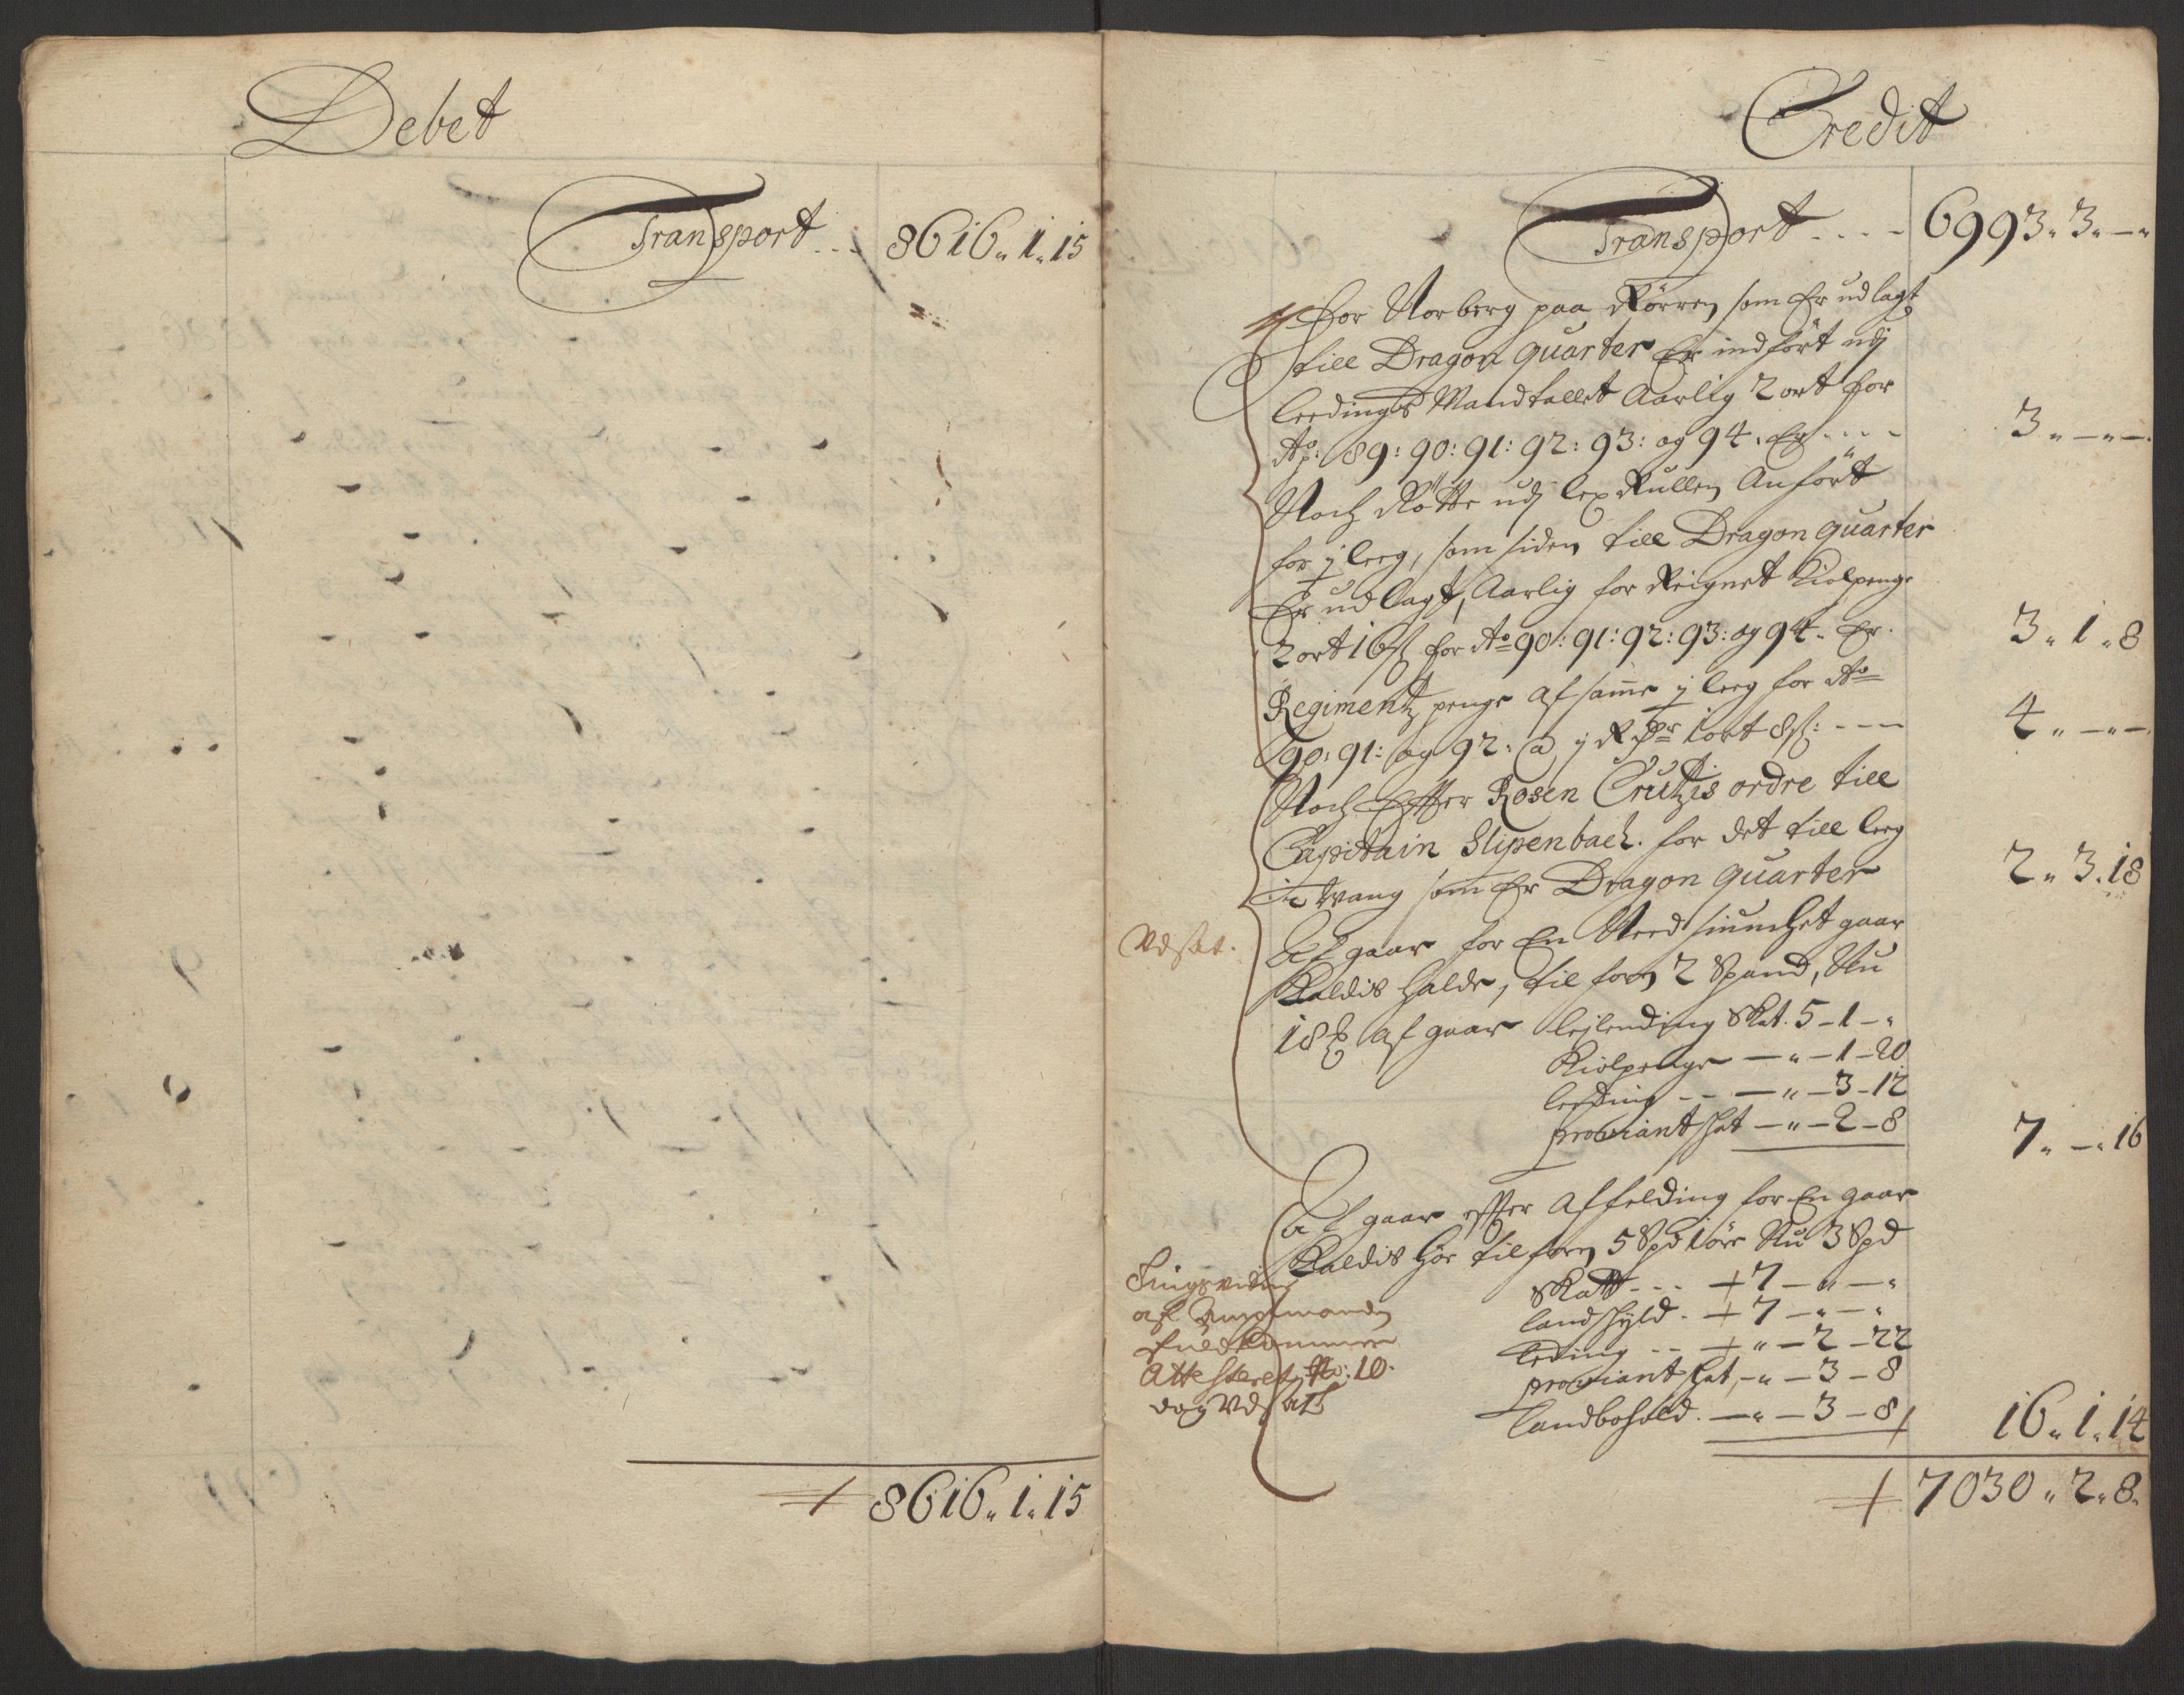 Debet
Transport... 8616. 1. 15
+ 8616. 1. 15
Credit
Transport.... 6993. 3. —.
For Norberg paa Rörren som Er udlagt
till Dragon quarter Er indfört udj
leedings Mandtallet Aarlig 2 ort for
Ao: 89: 90: 91: 92: 93: og 94. Er.... 3. —. —.
Noch Rötte udj lex Rullen Anfört
for j leeg, som siden till Dragon quarter
Er udlagt, Aarlig for Reignet Kiolpenge
2 ort 16 ß for Ao 90: 91: 92: 93: og 94. Er. 3. 1. 8
Regimentz penge af samme j leeg for Ao
90: 91: og 92. @ j Rdr 1 ort 8 ß: --- 4. —. —.
Noch Effter Rosen Crützis ordre till
Capitain Slipenbach. for det till leeg
i Wang som Er Dragon quarter 2. 3. 18
Vdsat.
Af gaar for En gaar
Kaldis Halde, til forn 2 Spand, Nu
18 af gaar leilending Skat. 5 - 1 - "
Kiolpenge — " — 1 - 20
leeding -- — " — 3 - 12
proviantskat — " — 2 - 8 7. —. 16
Af gaar effter Affelding for En gaar
Kaldis Hör tilforn 5 Spd 1 öre Nu 3 Spd
Skatt -- + 7 — " — "
landskyld. + 7 — " — "
leding -- + " — 2 - 22
proviantskat, — " — 3 - 8
landbohold. — " — 3 - 8 16. 1. 14
Tingsvidne
af
fuldkommen
Attesteret No: 10.
dog Vdsatt
+ 7030. 2. 8.